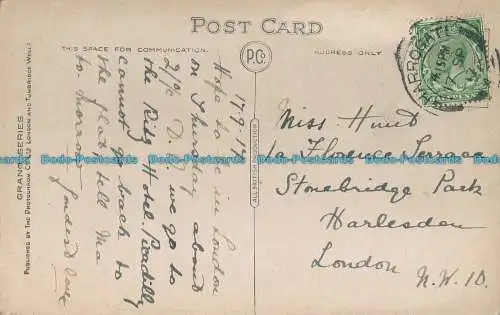 POST CARD
THIS SPACE FOR COMMUNICATION.
ADDRESS ONLY
P.Co.
HARROGATE
GRANO SERIES
PUBLISHED BY THE PHOTOCHROM CO. LTD. LONDON AND TUNBRIDGE WELLS
ALL BRITISH PRODUCTION
17.9.17
Hope to be in London
on Thursday about
2/0c D.V. we go to
the Ritz Hotel Picadilly
cannot go back to
the flat tell Ma
to-morrow. fondest love
Miss Hunt
1a Florence Terrace
Stonebridge Park
Harlesden
London
N.W.10.
Bodo-Postcards Bodo-Postcards Bodo-Postcards Bodo-Postcards Bodo-Postcards Bodo-Postcards